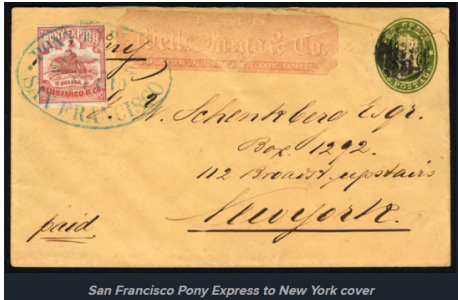 PONY EXPRESS
WELLS, FARGO & CO.
PONY
SAN FRANCISCO
Pony
Wells Fargo & Co.
POSTAGE
W. Schenkberg Esqr.
Box. 1292.
112 Broadst. upstairs
New york.
paid
San Francisco Pony Express to New York cover